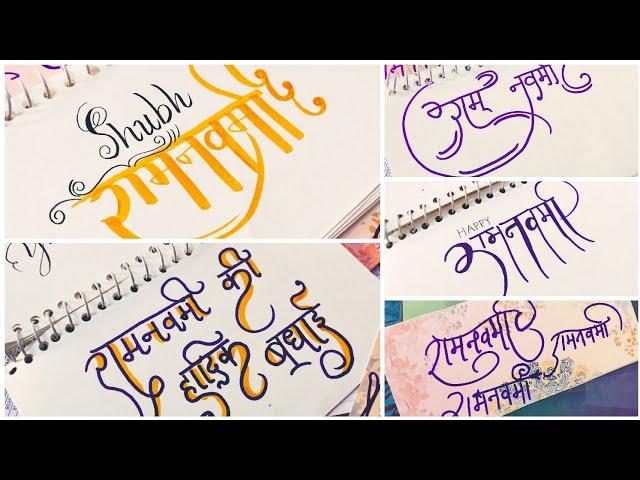 Shubh
रामनवमी
राम नवमी
HAPPY
रामनवमी
रामनवमी की
हार्दिक बधाई
रामनवमी
रामनवमी
रामनवमी